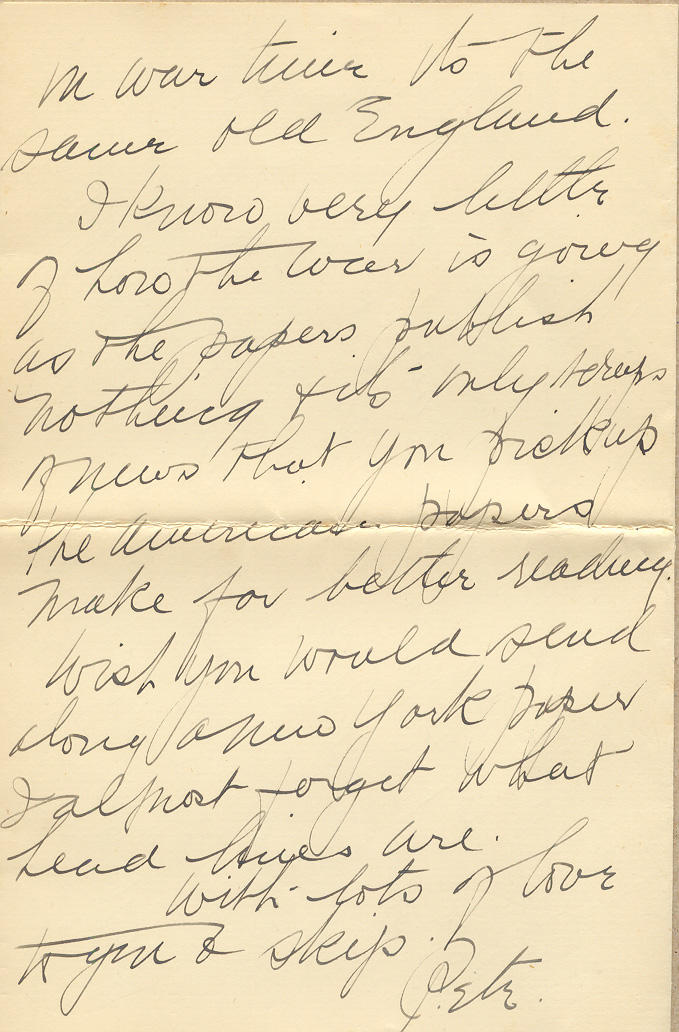 in war time its the
same old England.
I know very little
of how the war is going
as the papers publish
nothing & its only scraps
of news that you pick up
the American papers
make for better reading.
Wish you would send
along a New York paper
I almost forget what
head lines are.
With lots of love
to you & skip.
Pete.